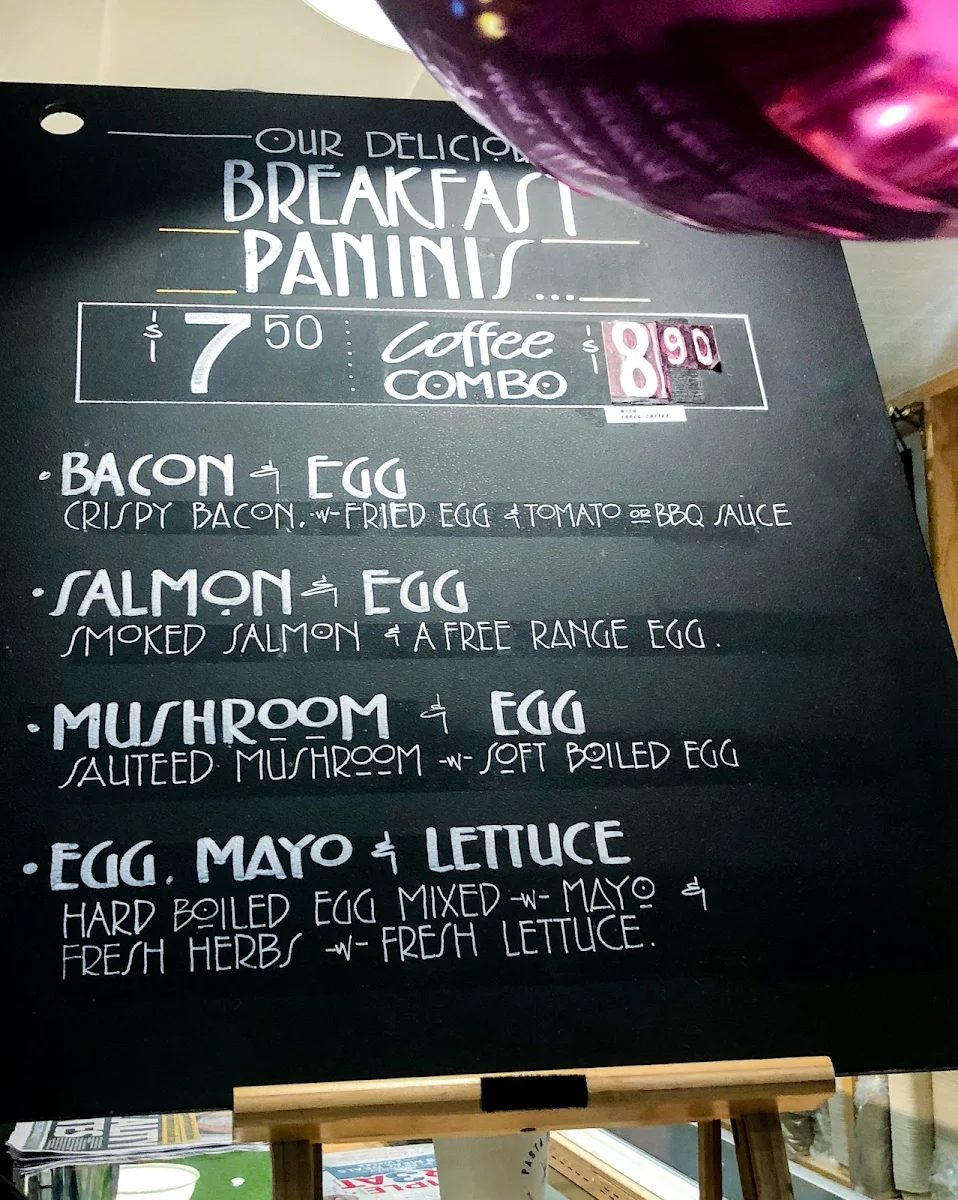 OUR DELICIOU
BREAKFAST
PANINIS...
$7 50 Coffee COMBO $8 90
WITH LARGE COFFEE
• BACON & EGG
CRISPY BACON. -W- FRIED EGG & TOMATO OR BBQ SAUCE
• SALMON & EGG
SMOKED SALMON & A FREE RANGE EGG.
• MUSHROOM & EGG
SAUTEED MUSHROOM -W- SOFT BOILED EGG
• EGG, MAYO & LETTUCE
HARD BOILED EGG MIXED -W- MAYO &
FRESH HERBS -W- FRESH LETTUCE.
PASTA